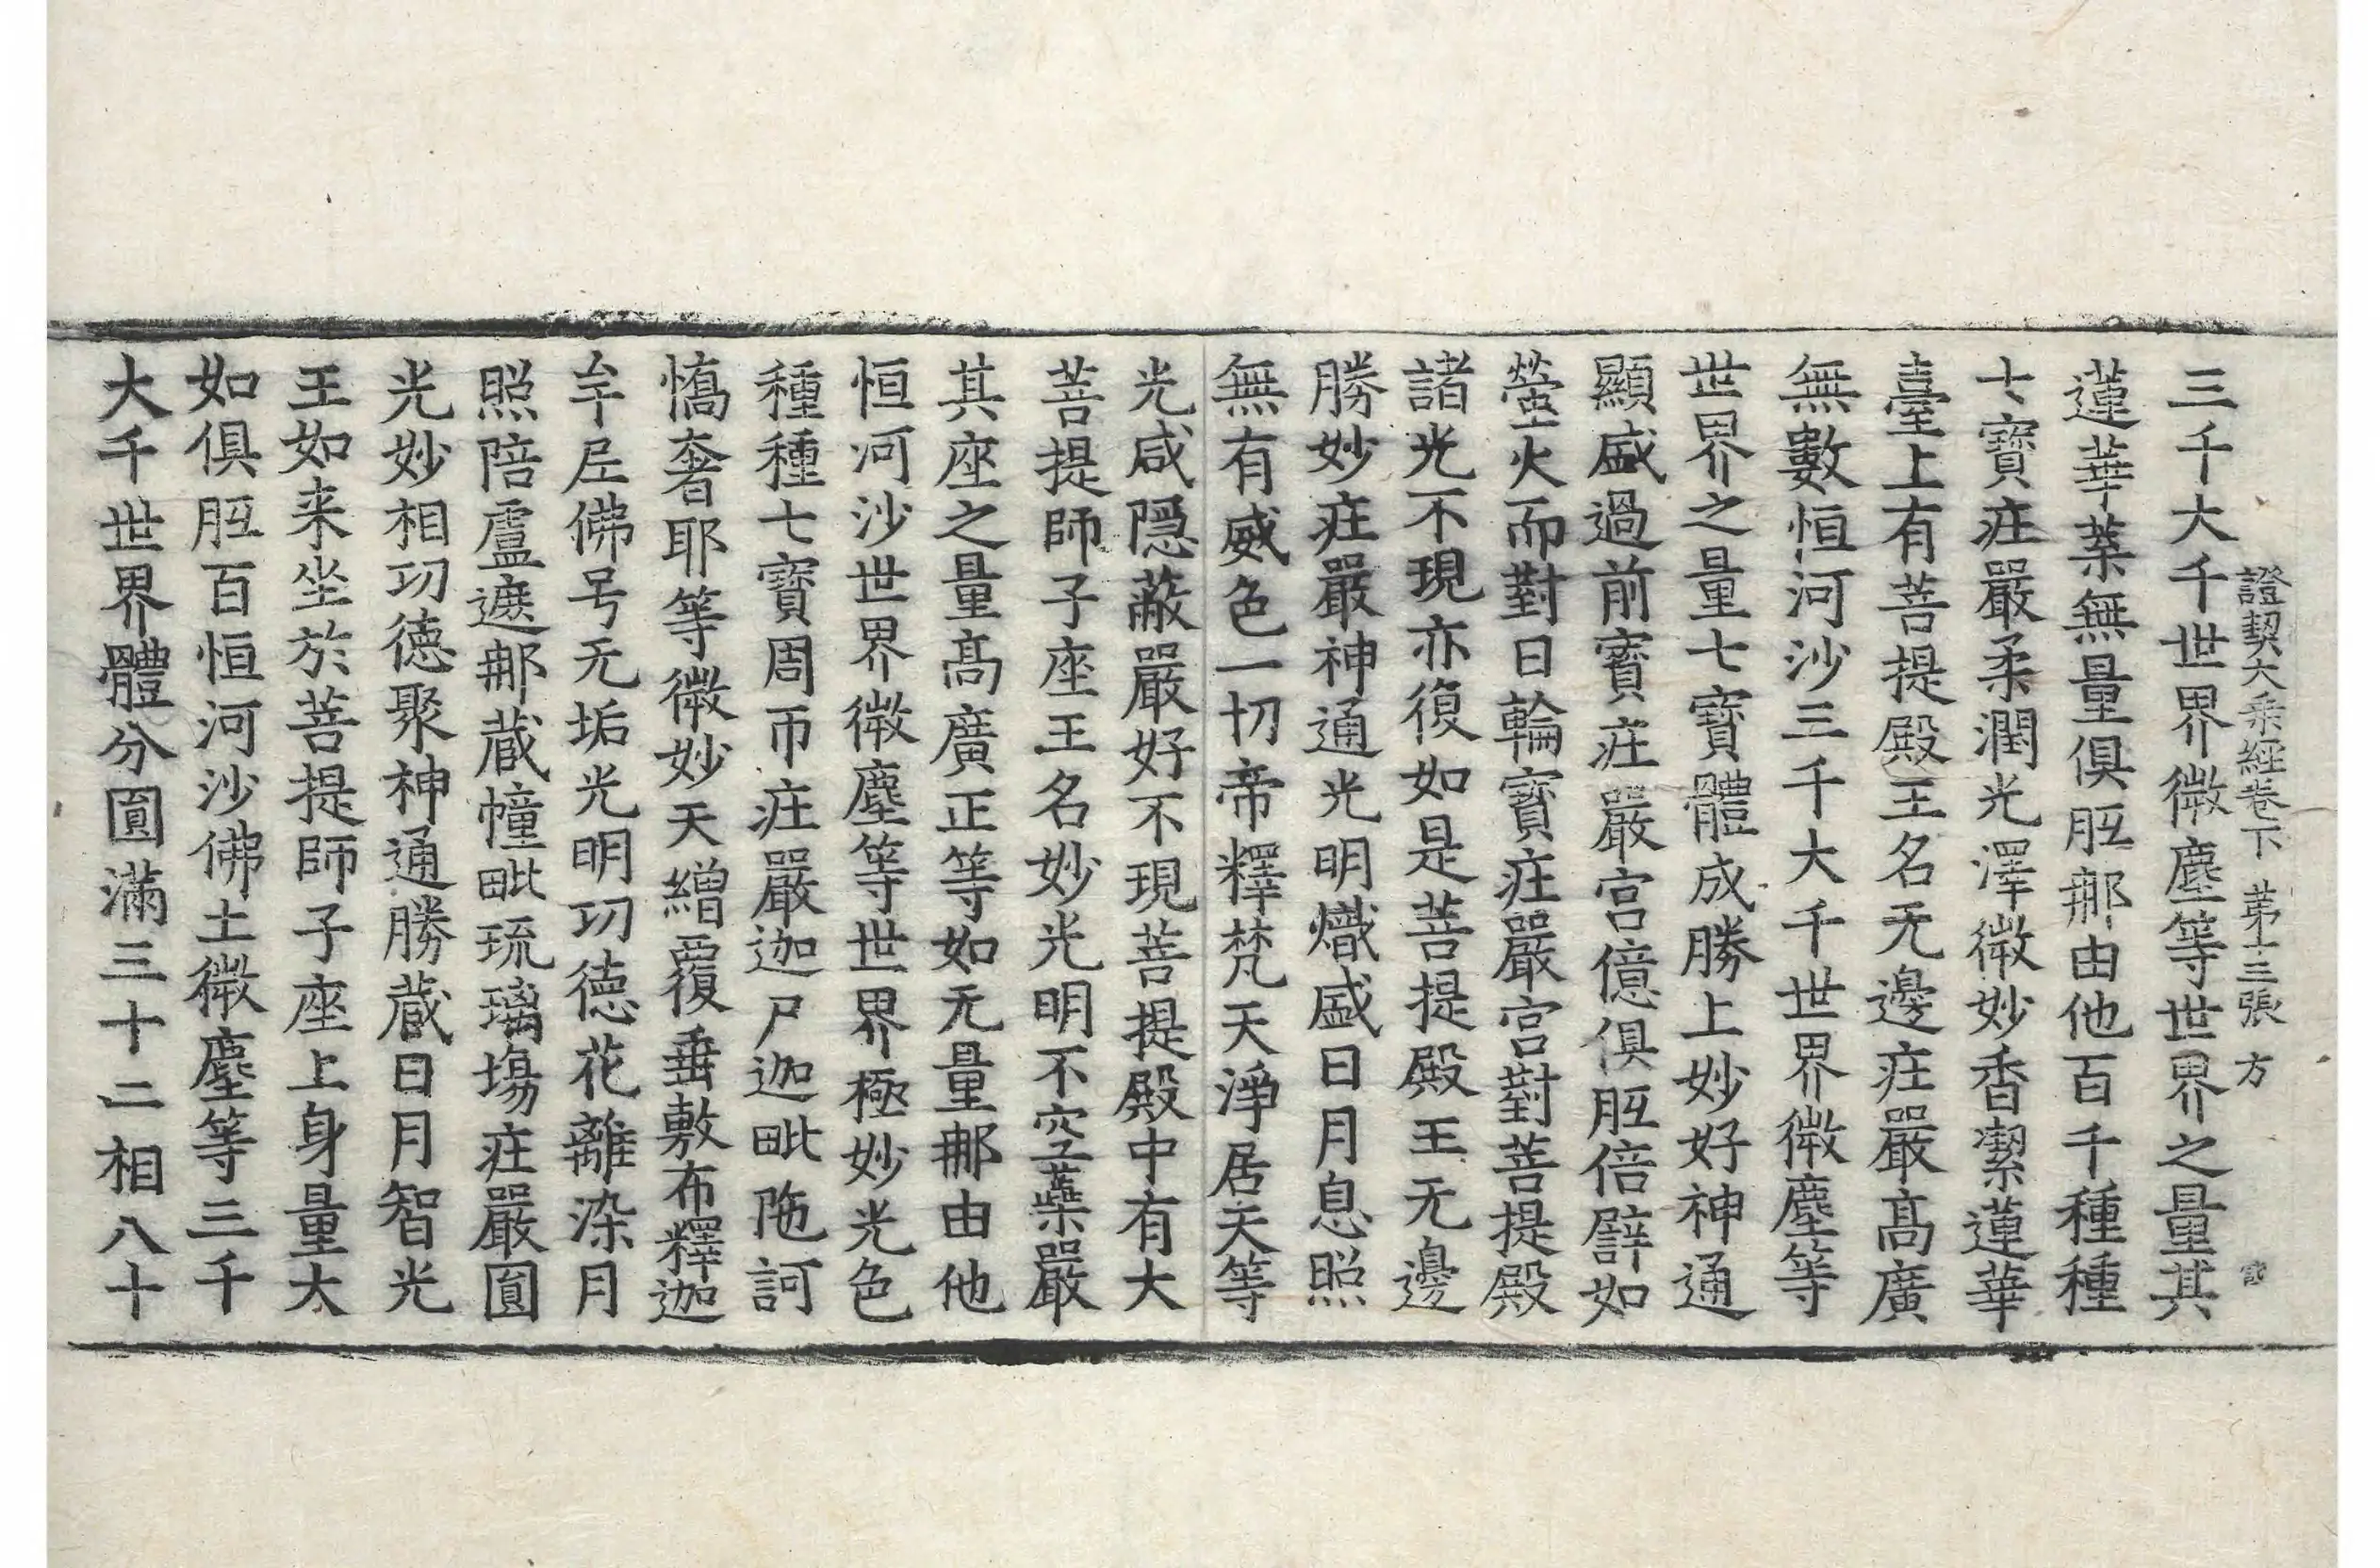 證契大乘經卷下 第十三張 方
三千大千世界微塵等世界之量其
蓮華葉無量俱胝那由他百千種種
七寶庄嚴柔潤光澤微妙香潔蓮華
臺上有菩提殿王名无邊庄嚴髙廣
無數恒河沙三千大千世界微塵等
世界之量七寶體成勝上妙好神通
顯盛過前寶庄嚴宫億俱胝倍譬如
螢火而對日輪寶庄嚴宫對菩提殿
諸光不現亦復如是菩提殿王无邊
勝妙庄嚴神通光明熾盛日月息照
無有威色一切帝釋梵天淨居天等
光咸隱蔽嚴好不現菩提殿中有大
菩提師子座王名妙光明不空藥嚴
其座之量髙廣正等如无量那由他
恒河沙世界微塵等世界極妙光色
種種七寶周帀庄嚴迦尸迦毗陁訶
憍奢耶等微妙天繒覆垂敷布釋迦
牟尼佛号无垢光明功德花離染月
照陪盧遮那蔵幢毗琉璃塲庄嚴圓
光妙相功德聚神通勝蔵日月智光
王如来坐於菩提師子座上身量大
如俱胝百恒河沙佛土微塵等三千
大千世界體分圓滿三十二相八十